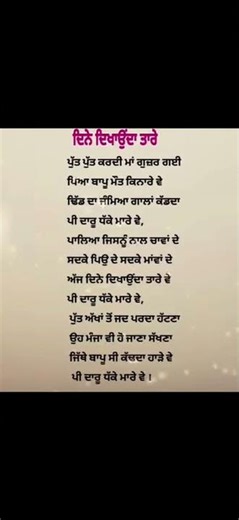 ਦਿਨੇ ਦਿਖਾਉਂਦਾ ਤਾਰੇ
ਪੁੱਤ ਪੁੱਤ ਕਰਦੀ ਮਾਂ ਗੁਜ਼ਰ ਗਈ
ਪਿਆ ਬਾਪੂ ਮੌਤ ਕਿਨਾਰੇ ਵੇ
ਢਿੱਡ ਦਾ ਜੰਮਿਆ ਗਾਲਾਂ ਕੱਡਦਾ
ਪੀ ਦਾਰੂ ਧੱਕੇ ਮਾਰੇ ਵੇ,
ਪਾਲਿਆ ਜਿਸਨੂੰ ਨਾਲ ਚਾਵਾਂ ਦੇ
ਸਦਕੇ ਪਿਉ ਦੇ ਸਦਕੇ ਮਾਂਵਾਂ ਦੇ
ਅੱਜ ਦਿਨੇ ਦਿਖਾਉਂਦਾ ਤਾਰੇ ਵੇ
ਪੀ ਦਾਰੂ ਧੱਕੇ ਮਾਰੇ ਵੇ,
ਪੁੱਤ ਅੱਖਾਂ ਤੋਂ ਜਦ ਪਰਦਾ ਹੱਟਣਾ
ਉਹ ਮੰਜਾ ਵੀ ਹੋ ਜਾਣਾ ਸੱਖਣਾ
ਜਿੱਥੇ ਬਾਪੂ ਸੀ ਕੱਢਦਾ ਹਾੜੇ ਵੇ
ਪੀ ਦਾਰੂ ਧੱਕੇ ਮਾਰੇ ਵੇ !